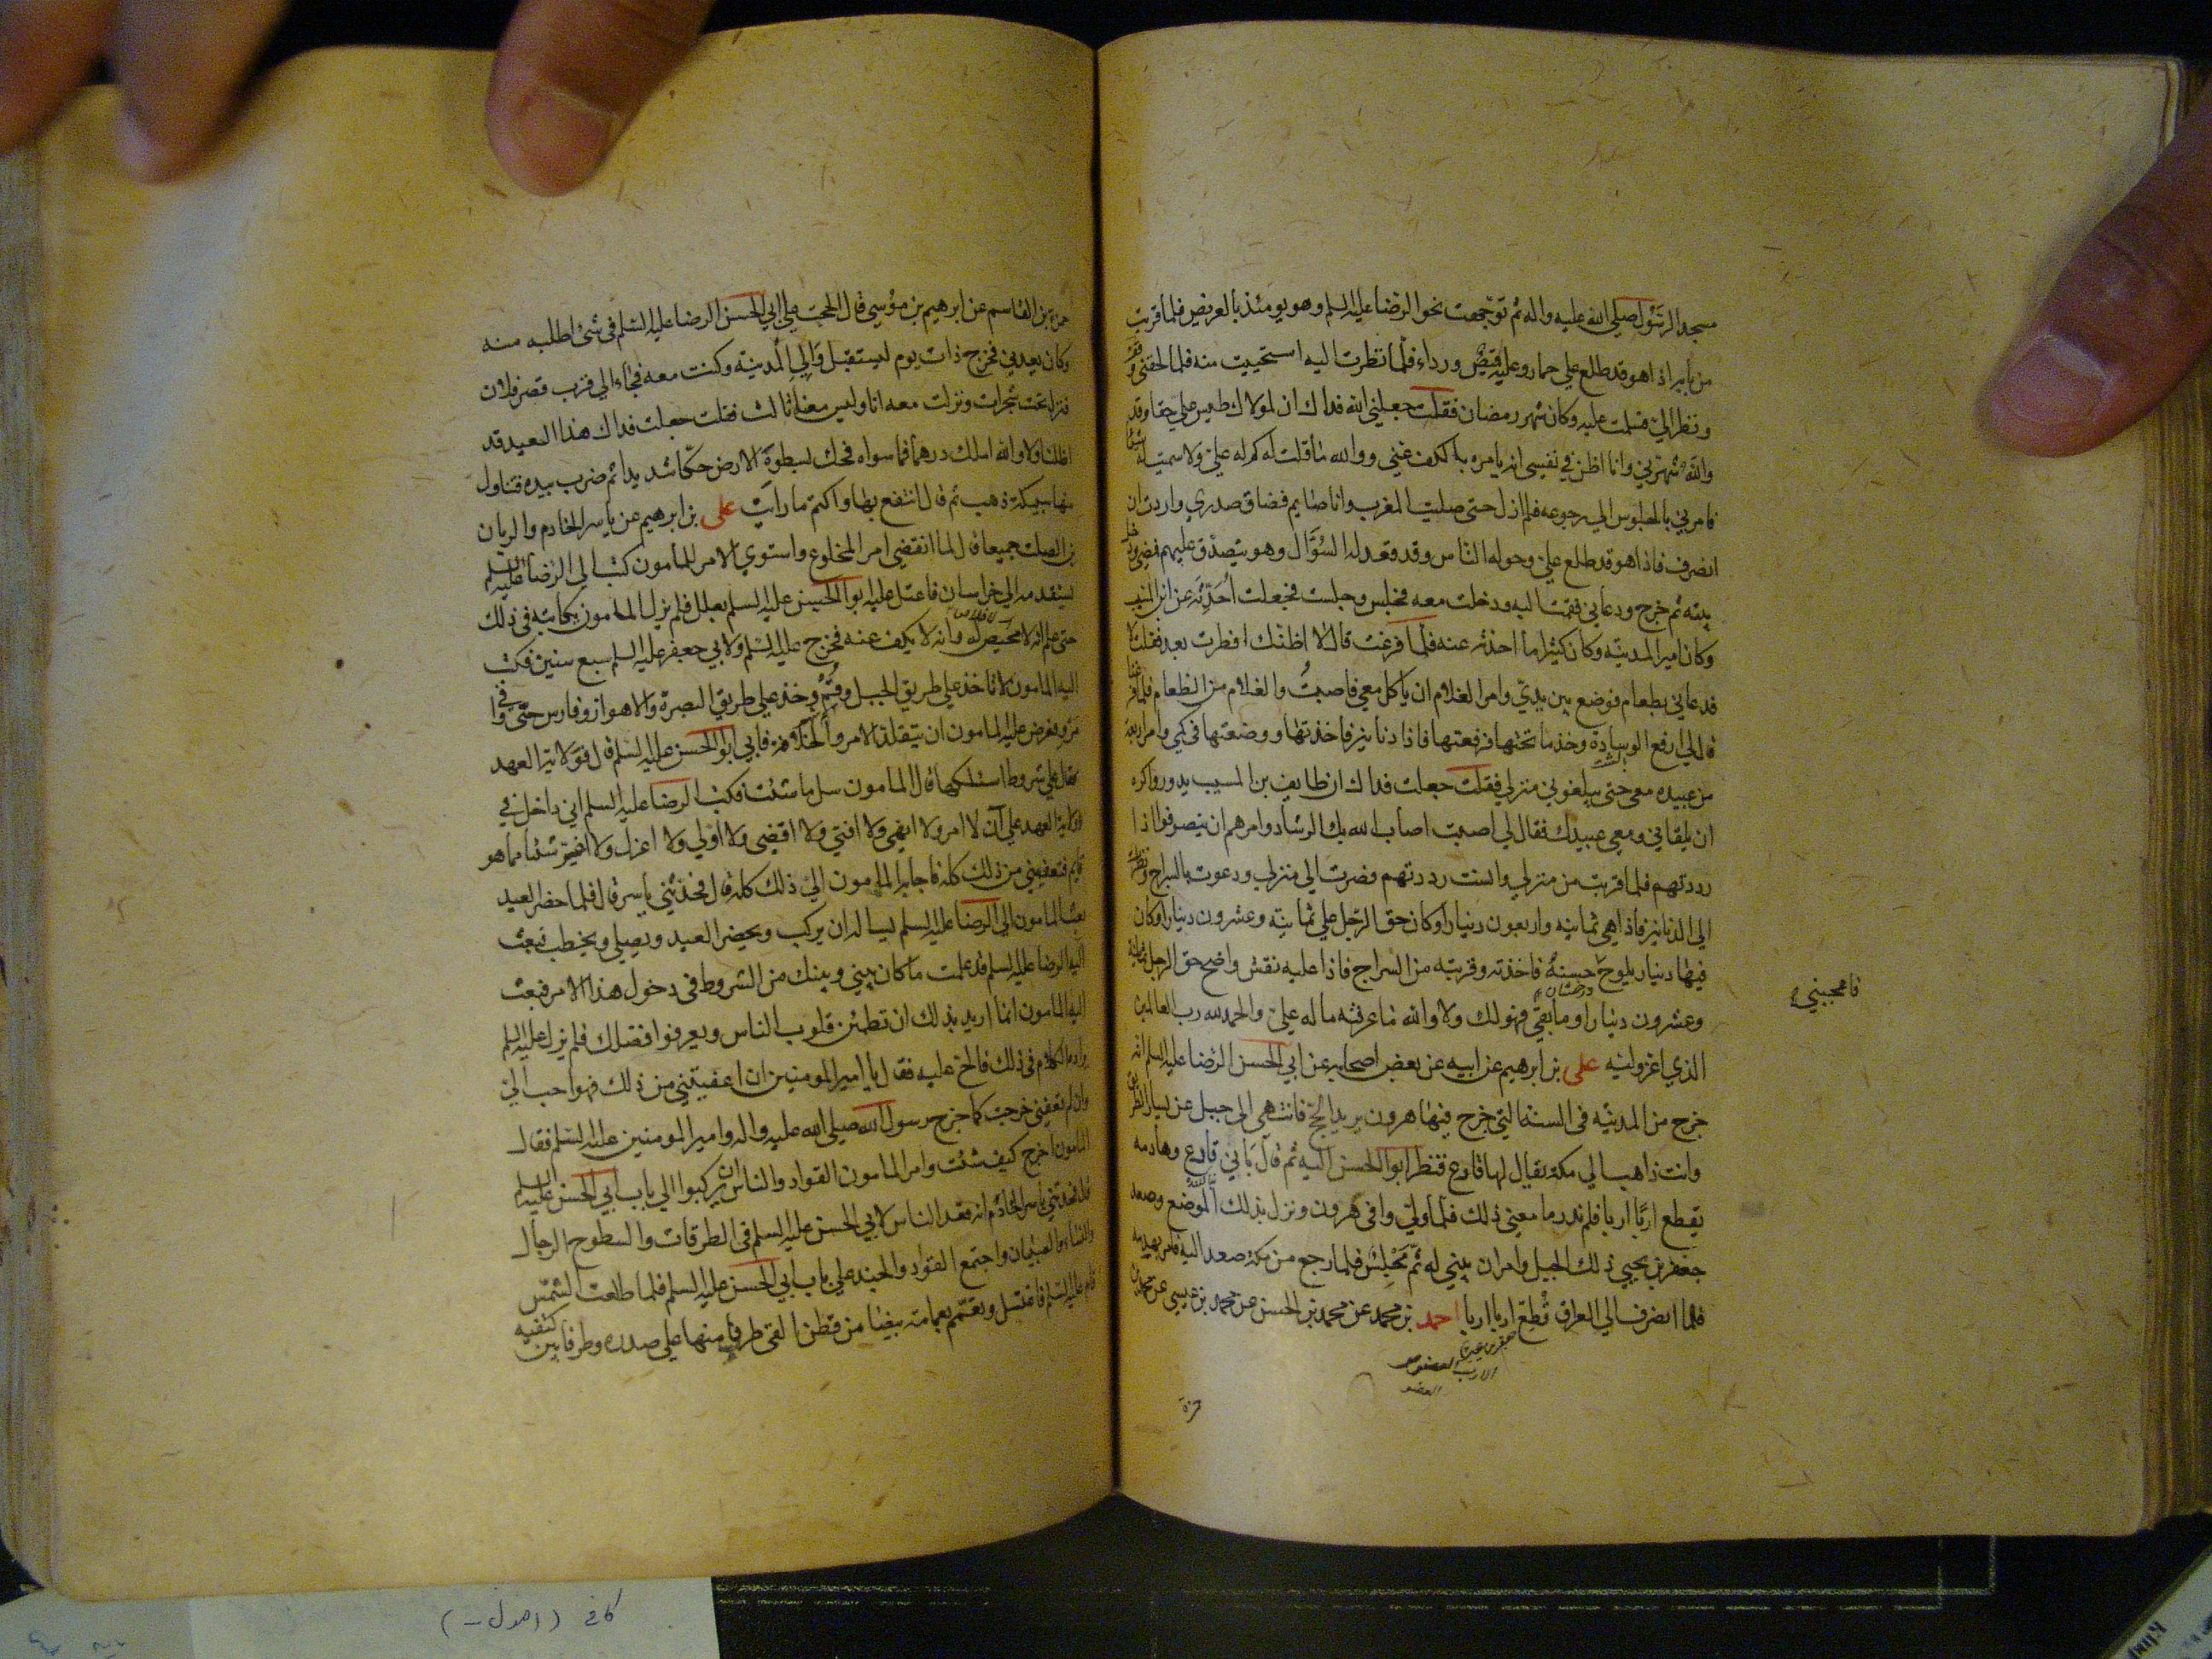 مسجد الرسول صلي الله عليه واله ثم توجهت نحو الرضا عليه السلم وهو يومئذ بالعريض فلما قربت
من بابه اذا هو قد طلع علي حمار وعليه قميص ورداء فلما نظرت اليه استحييت منه فلما لحقني وقف
ونظر اليّ فسلمت عليه وكان شهر رمضان فقلت جعلني الله فداك ان لمولاك طيس علي حقا وقد
والله شهرني وانا اظن في نفسي انه يامره بالكف عني ووالله ما قلت له كم له علي ولا سميت له شيئا
فامرني بالجلوس الي رجوعه فلم ازل حتى صليت المغرب وانا صايم فضاق صدري واردت ان
انصرف فاذا هو قد طلع علي وحوله الناس وقد قعد له السؤال وهو يتصدق عليهم فمضي ودخل
بيته ثم خرج ودعاني فقمت اليه ودخلت معه فجلس وجلست فجعلت احدثه عن ابن المسيب
وكان امير المدينة وكان كثيرا ما احدثه عنه فلما فرغت قال لا اظنك افطرت بعد فقلت لا
فدعاني بطعام فوضع بين يديّ وامر الغلام ان ياكل معي فاصبت والغلام من الطعام فلما فرغنا
قال لي ارفع الوسادة وخذ ما تحتها فرفعتها فاذا دنانير فاخذتها ووضعتها في كمي وامر اربعة
من عبيده معي حتى يبلغوني منزلي فقلت جعلت فداك ان طايف بن المسيب يدور واكره
ان يلقاني ومعي عبيدك فقال لي اصبت اصاب الله بك الرشاد وامرهم ان ينصرفوا اذا
رددتهم فلما قربت من منزلي وانست رددتهم فصرت الي منزلي ودعوت بالسراج ونظرت
الي الدنانير فاذا هي ثمانية واربعون دينارا وكان حق الرجل علي ثمانية وعشرون دينارا وكان
فيها دينار يلوح حسنه فاخذته وقربته من السراج فاذا عليه نقش واضح حق الرجل ثمانية
فاعجبني
وعشرون دينارا وما بقي فهو لك ولا والله ما عرفته ما له علي والحمد لله رب العالمين
الذي اعز وليه علي بن ابرهيم عن ابيه عن بعض اصحابه عن ابي الحسن الرضا عليه السلم انه
خرج من المدينة في السنة التي خرج فيها هرون يريد الحج فانتهى الى جبل عن يسار الطريق
وانت ذاهب الي مكة يقال لها قارع فنظر ابو الحسن اليه ثم قال باني قارع وهادمه
يقطع اربا اربا فلم ندر ما معني ذلك فلما ولي وافي هرون ونزل بذلك الموضع وصعد
جعفر بن يحيي ذلك الجبل وامر ان يبني له ثم مجلس فلما رجع من مكة صعد اليه فامر بهدمه
فلما انصرف الي العراق قطع اربا اربا احمد بن محمد عن محمد بن الحسن عن محمد بن عيسي عن محمد بن
حمزة
حمزة بن القاسم عن ابرهيم بن موسي قال الححت علي ابي الحسن الرضا عليه السلم في شئ اطلبه منه
وكان يعدني فخرج ذات يوم ليستقبل والي المدينة وكنت معه فجاء الي قرب قصر فلان
فنزل تحت شجرات ونزلت معه انا وليس معنا ثالث فقلت جعلت فداك هذا العيد قد
اظلنا ولا والله املك درهما فما سواه فحك بسطوة الارض حكا شديدا ثم ضرب بيده فتناول
منها سبيكة ذهب ثم قال انتفع بها واكتم ما رايت علي بن ابرهيم عن ياسر الخادم والريان
بن الصلت جميعا قال لما انقضي امر المخلوع واستوي الامر للمأمون كتب الي الرضا عليه السلم
يستقدمه الي خراسان فاعتل عليه ابو الحسن عليه السلم بعلل فلم يزل المامون يكاتبه في ذلك
حتى علم انه لا محيص له وانه لا يكف عنه فخرج عليه السلم ولابي جعفر عليه السلم سبع سنين فكتب
اليه المامون لا تاخذ علي طريق الجبل وقم وخذ علي طريق البصرة والاهواز وفارس حتى وافي
مرو فعرض عليه المامون ان يتقلد الامر والخلافة فابي ابو الحسن عليه السلم قال فولاية العهد
فقال علي شروط اسئلكها قال المامون سل ما شئت فكتب الرضا عليه السلم اني داخل في
ولاية العهد علي ان لا امر ولا انهي ولا افتي ولا اقضي ولا اولي ولا اعزل ولا اغير شئا مما هو
قايم فتعفيني من ذلك كله فاجابه المامون الي ذلك كله قال فحدثني ياسر قال فلما حضر العيد
بعث المامون الي الرضا عليه السلم يساله ان يركب ويحضر العيد ويصلي ويخطب فبعث
اليه الرضا عليه السلم قد علمت ما كان بيني وبينك من الشروط في دخول هذا الامر فبعث
اليه المامون انما اريد بذلك ان تطمئن قلوب الناس ويعرفوا فضلك فلم يزل عليه السلم
يراده الكلام في ذلك فالح عليه فقال يا امير المومنين ان اعفيتني من ذلك فهو احب الي
وان لم تعفني خرجت كما خرج رسول الله صلي الله عليه واله وامير المومنين عليه السلم فقال
المامون اخرج كيف شئت وامر المامون القواد والناس ان يركبوا الي باب ابي الحسن عليه السلم
قال فحدثني ياسر الخادم انه قعد الناس لابي الحسن عليه السلم في الطرقات والسطوح الرجال
والنساء والصبيان واجتمع القواد والجند علي باب ابي الحسن عليه السلم فلما طلعت الشمس
قام عليه السلم فاغتسل وتعمم بعمامة بيضا من قطن القي طرفا منها علي صدره وطرفا بين كتفيه
كافي (اصول -)